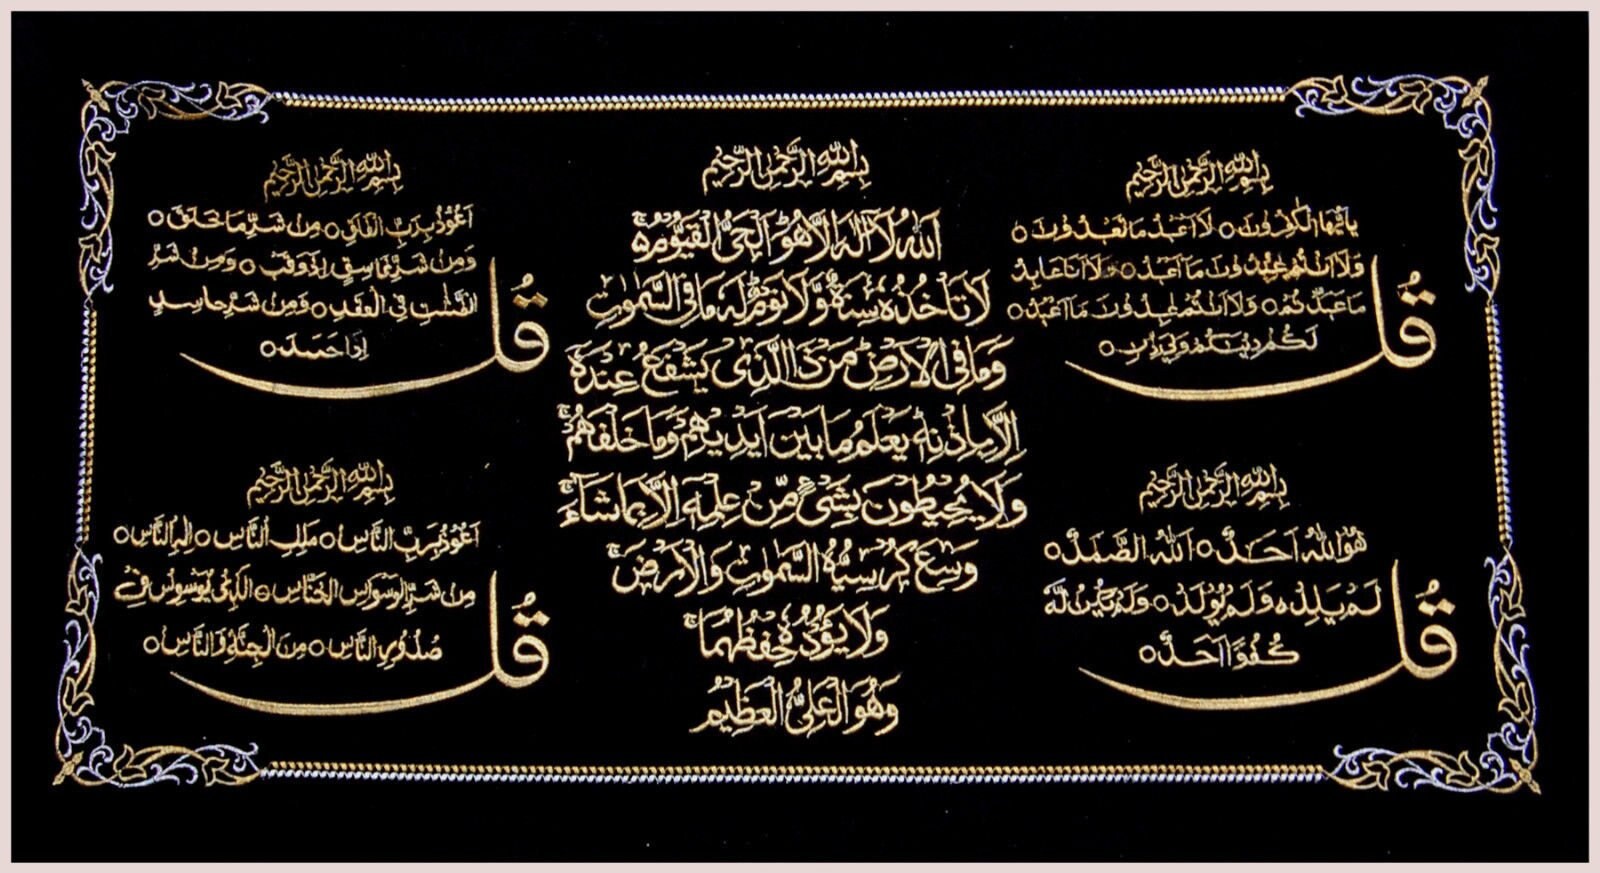 بسم الله الرحمن الرحيم
قل
يايها الكفرون ○ لا اعبد ما تعبدون ○
ولا انتم عبدون ما اعبد ○ ولا انا عابد
ما عبدتم ○ ولا انتم عبدون ما اعبد ○
لكم دينكم ولي دين ○
بسم الله الرحمن الرحيم
قل
هو الله احد ○ الله الصمد ○
لم يلد ○ ولم يولد ○ ولم يكن له
كفوا احد ○
بسم الله الرحمن الرحيم
الله لا اله الا هو الحي القيوم ○
لا تاخذه سنة ولا نوم له ما في السموت
وما في الارض من ذا الذي يشفع عنده
الا باذنه يعلم ما بين ايديهم وما خلفهم
ولا يحيطون بشيء من علمه الا بما شاء
وسع كرسيه السموت والارض
ولا يؤده حفظهما
وهو العلي العظيم
بسم الله الرحمن الرحيم
قل
اعوذ برب الفلق ○ من شر ما خلق ○
ومن شر غاسق اذا وقب ○ ومن شر
النفثت في العقد ○ ومن شر حاسد
اذا حسد ○
بسم الله الرحمن الرحيم
قل
اعوذ برب الناس ○ ملك الناس ○ اله الناس ○
من شر الوسواس الخناس ○ الذي يوسوس في
صدور الناس ○ من الجنة والناس ○